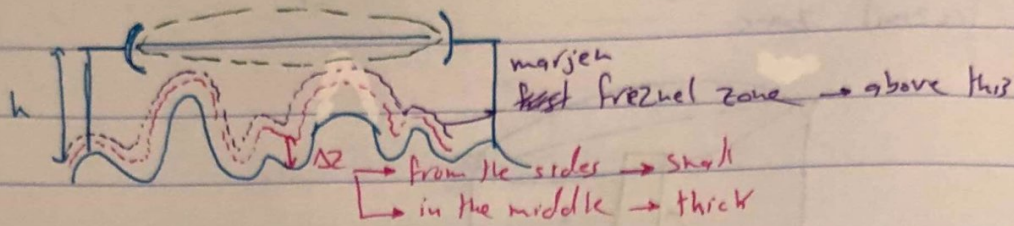 h
marjen
first freznel zone → above this
ΔZ → from the sides → small
→ in the middle → thick